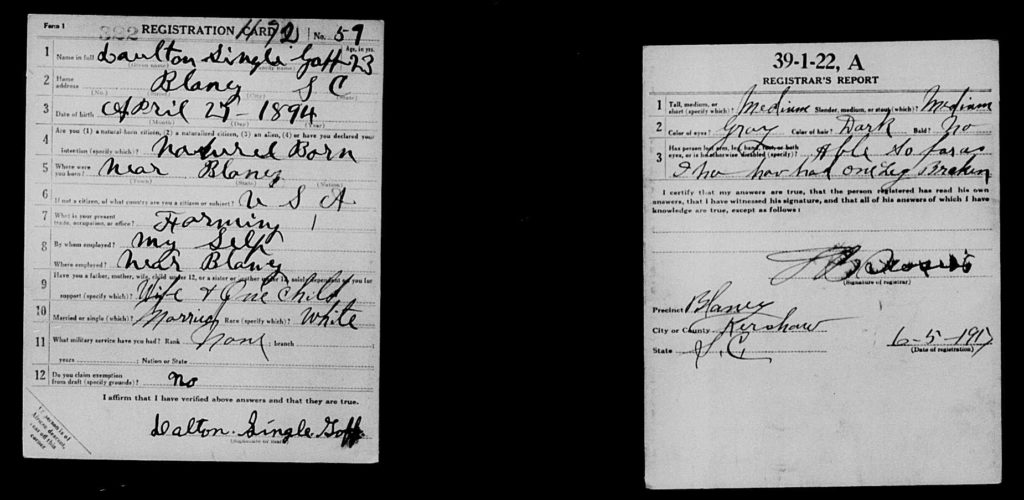 Form 1
322 REGISTRATION CARD 1192 No. 59
1 Name in full Daulton Single Goff 23
(Given name) (Family name) Age, in yrs.
2 Home address Blaney S C
(No.) (Street) (City) (State)
3 Date of birth April 27 - 1894
(Month) (Day) (Year)
4 Are you (1) a natural-born citizen, (2) a naturalized citizen, (3) an alien, (4) or have you declared your
intention (specify which)? Naturel Born
5 Where were you born? Near Blaney
(Town) (State) (Nation)
6 If not a citizen, of what country are you a citizen or subject? U S A
7 What is your present trade, occupation, or office? Farming
8 By whom employed? My Self
Where employed? Near Blaney
9 Have you a father, mother, wife, child under 12, or a sister or brother under 12, solely dependent on you for
support (specify which)? Wife + One Child
10 Married or single (which)? Married Race (specify which)? White
11 What military service have you had? Rank None ; branch
years ; Nation or State
12 Do you claim exemption from draft (specify grounds)? no
I affirm that I have verified above answers and that they are true.
Dalton. Single. Goff
(Signature or mark)
If person is of
African descent,
tear off this
corner
39-1-22, A
REGISTRAR'S REPORT
1 Tall, medium, or short (specify which)? Medium Slender, medium, or stout (which)? Medium
2 Color of eyes? Gray Color of hair? Dark Bald? No
3 Has person lost arm, leg, hand, foot, or both
eyes, or is he otherwise disabled (specify)? Able So far as
I hav had one Leg Broken
I certify that my answers are true, that the person registered has read his own
answers, that I have witnessed his signature, and that all of his answers of which I have
knowledge are true, except as follows:
(Signature of registrar)
Precinct Blaney
City or County Kershaw
State S. C.
6-5-1917
(Date of registration)